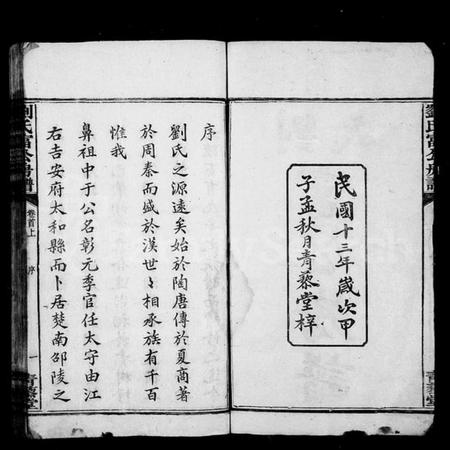 劉氏富公房譜
民國十三年歲次甲
子孟秋月青藜堂梓
青藜堂
序
劉氏之源遠矣始於陶唐傳於夏商著
於周秦而盛於漢世〻相承族有千百
惟我
鼻祖中于公名彰元季官任太守由江
右吉安府太和縣而卜居楚南邵陵之
劉氏富公房譜
卷首上
序
一
青藜堂